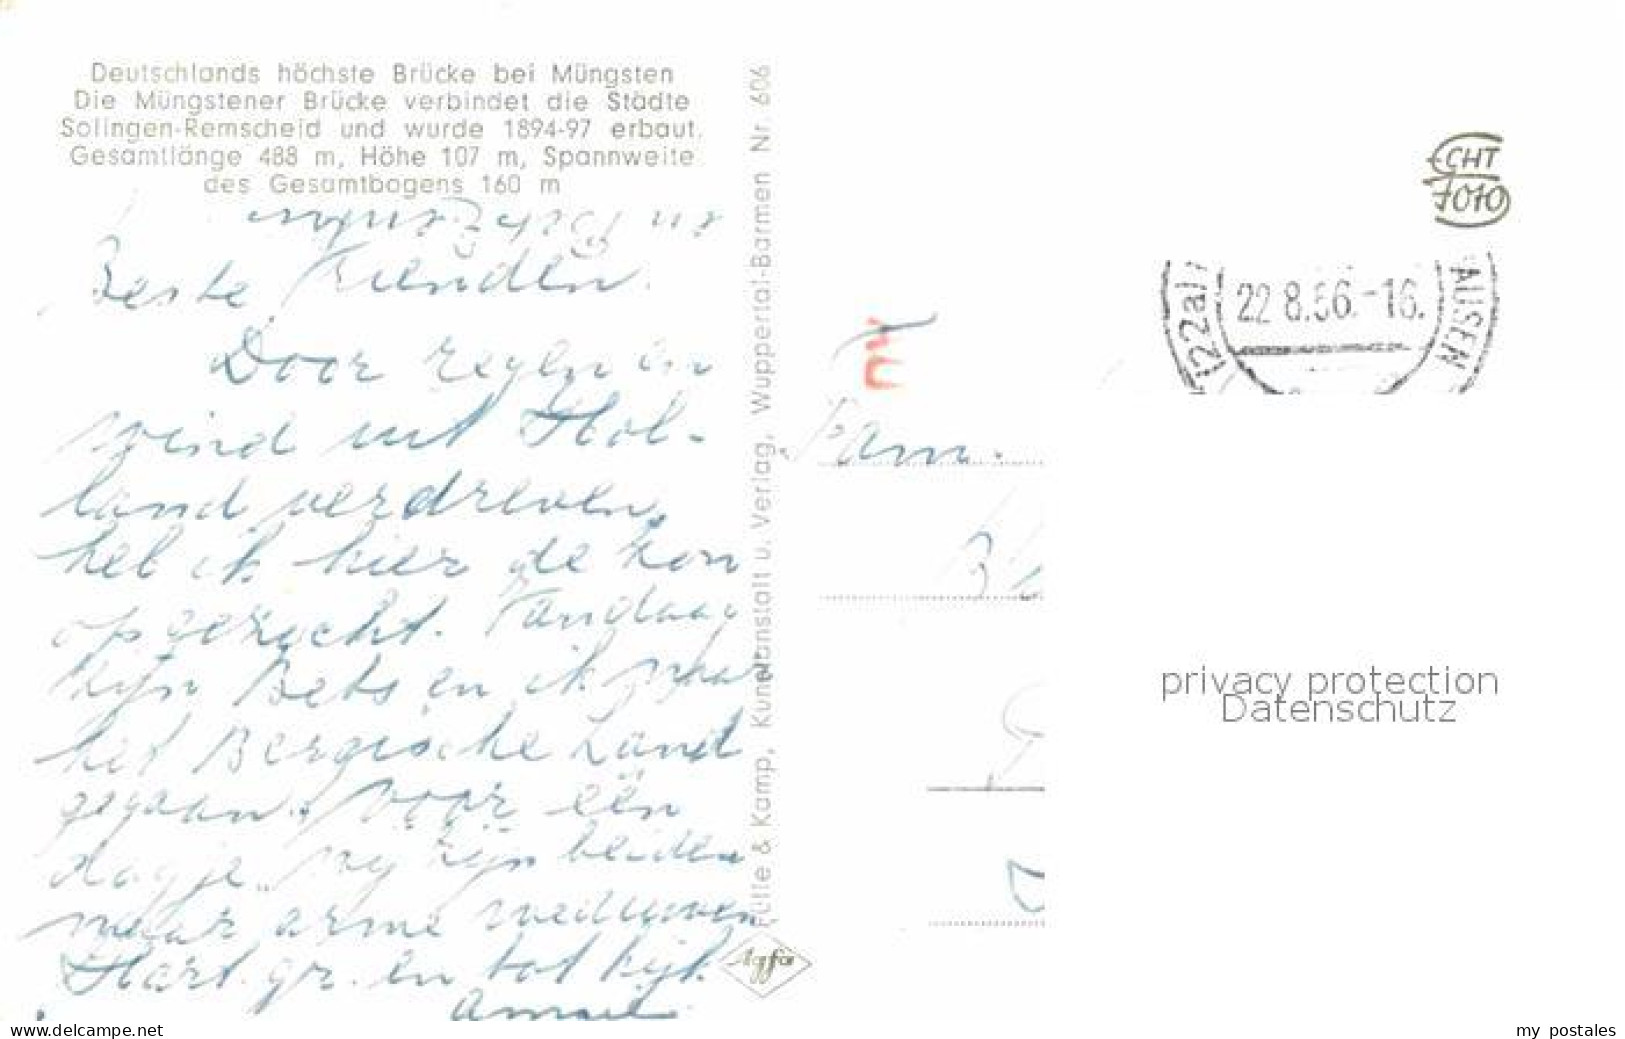 Deutschlands höchste Brücke bei Müngsten
Die Müngstener Brücke verbindet die Städte
Solingen-Remscheid und wurde 1894-97 erbaut.
Gesamtlänge 488 m, Höhe 107 m, Spannweite
des Gesamtbogens 160 m
Beste Vrienden.
Door regen en
wind uit Hol-
land verdreven,
heb ik hier de zon
opgezocht. Vandaag
zijn Bets en ik naar
het Bergische Land
gegaan. Voor één
dagje. Wij zijn beiden
maar arme weduwen
Hart. gr. en tot kijk
Fülle & Kamp, Kunstanstalt u. Verlag, Wuppertal-Barmen Nr. 606
Agfa
ECHT
FOTO
(22a)
22.8.56.-16.
AUSEN
Fam.
privacy protection
Datenschutz
www.delcampe.net
my postales